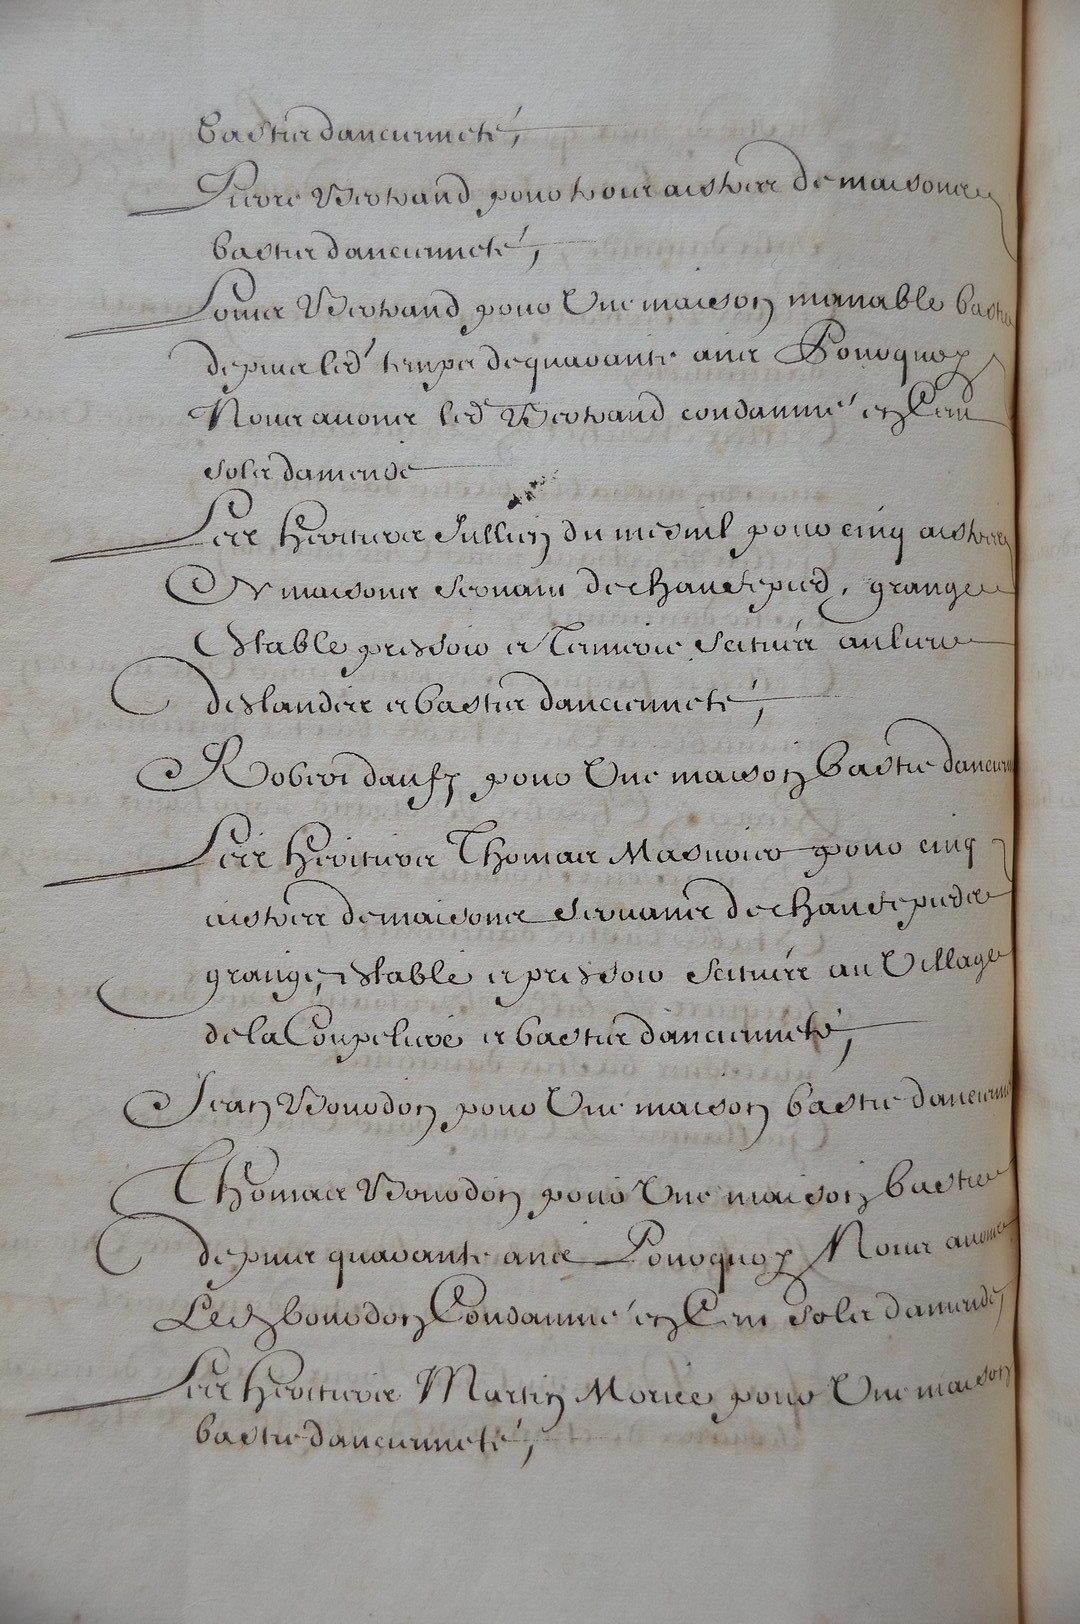 bastier d'ancienneté,
Pierre Bertrand pour trois aistres de maisons
basties d'ancienneté,
Louis Bertrand pour Une maison manable bastie
depuis led temps de quarante ans Pourquoy
Nous avons led Bertrand condamné en Cent
solz damende
Les heritiers Jullien du mesnil pour cinq aistres
de maisons servant de chauffepied, grange
Estable pressoir et Tennerie scituées au lieu
des landes et basties d'ancienneté,
Robert daufy pour Une maison bastie dancienneté
Les heritiers Thomas Masnoir pour cinq
aistres de maisons servans de chauffepied et
grange, estable et pressoir scituées au Village
de la Coupeliere et basties d'ancienneté,
Jean Bourdon pour Une maison bastie dancienneté
Thomas Bourdon pour Une maison bastie
depuis quarante ans Pourquoy Nous avons
Led bourdon Condamné en Cent solz damende,
Les heritiers Martin Morice pour Une maison
bastie d'ancienneté,